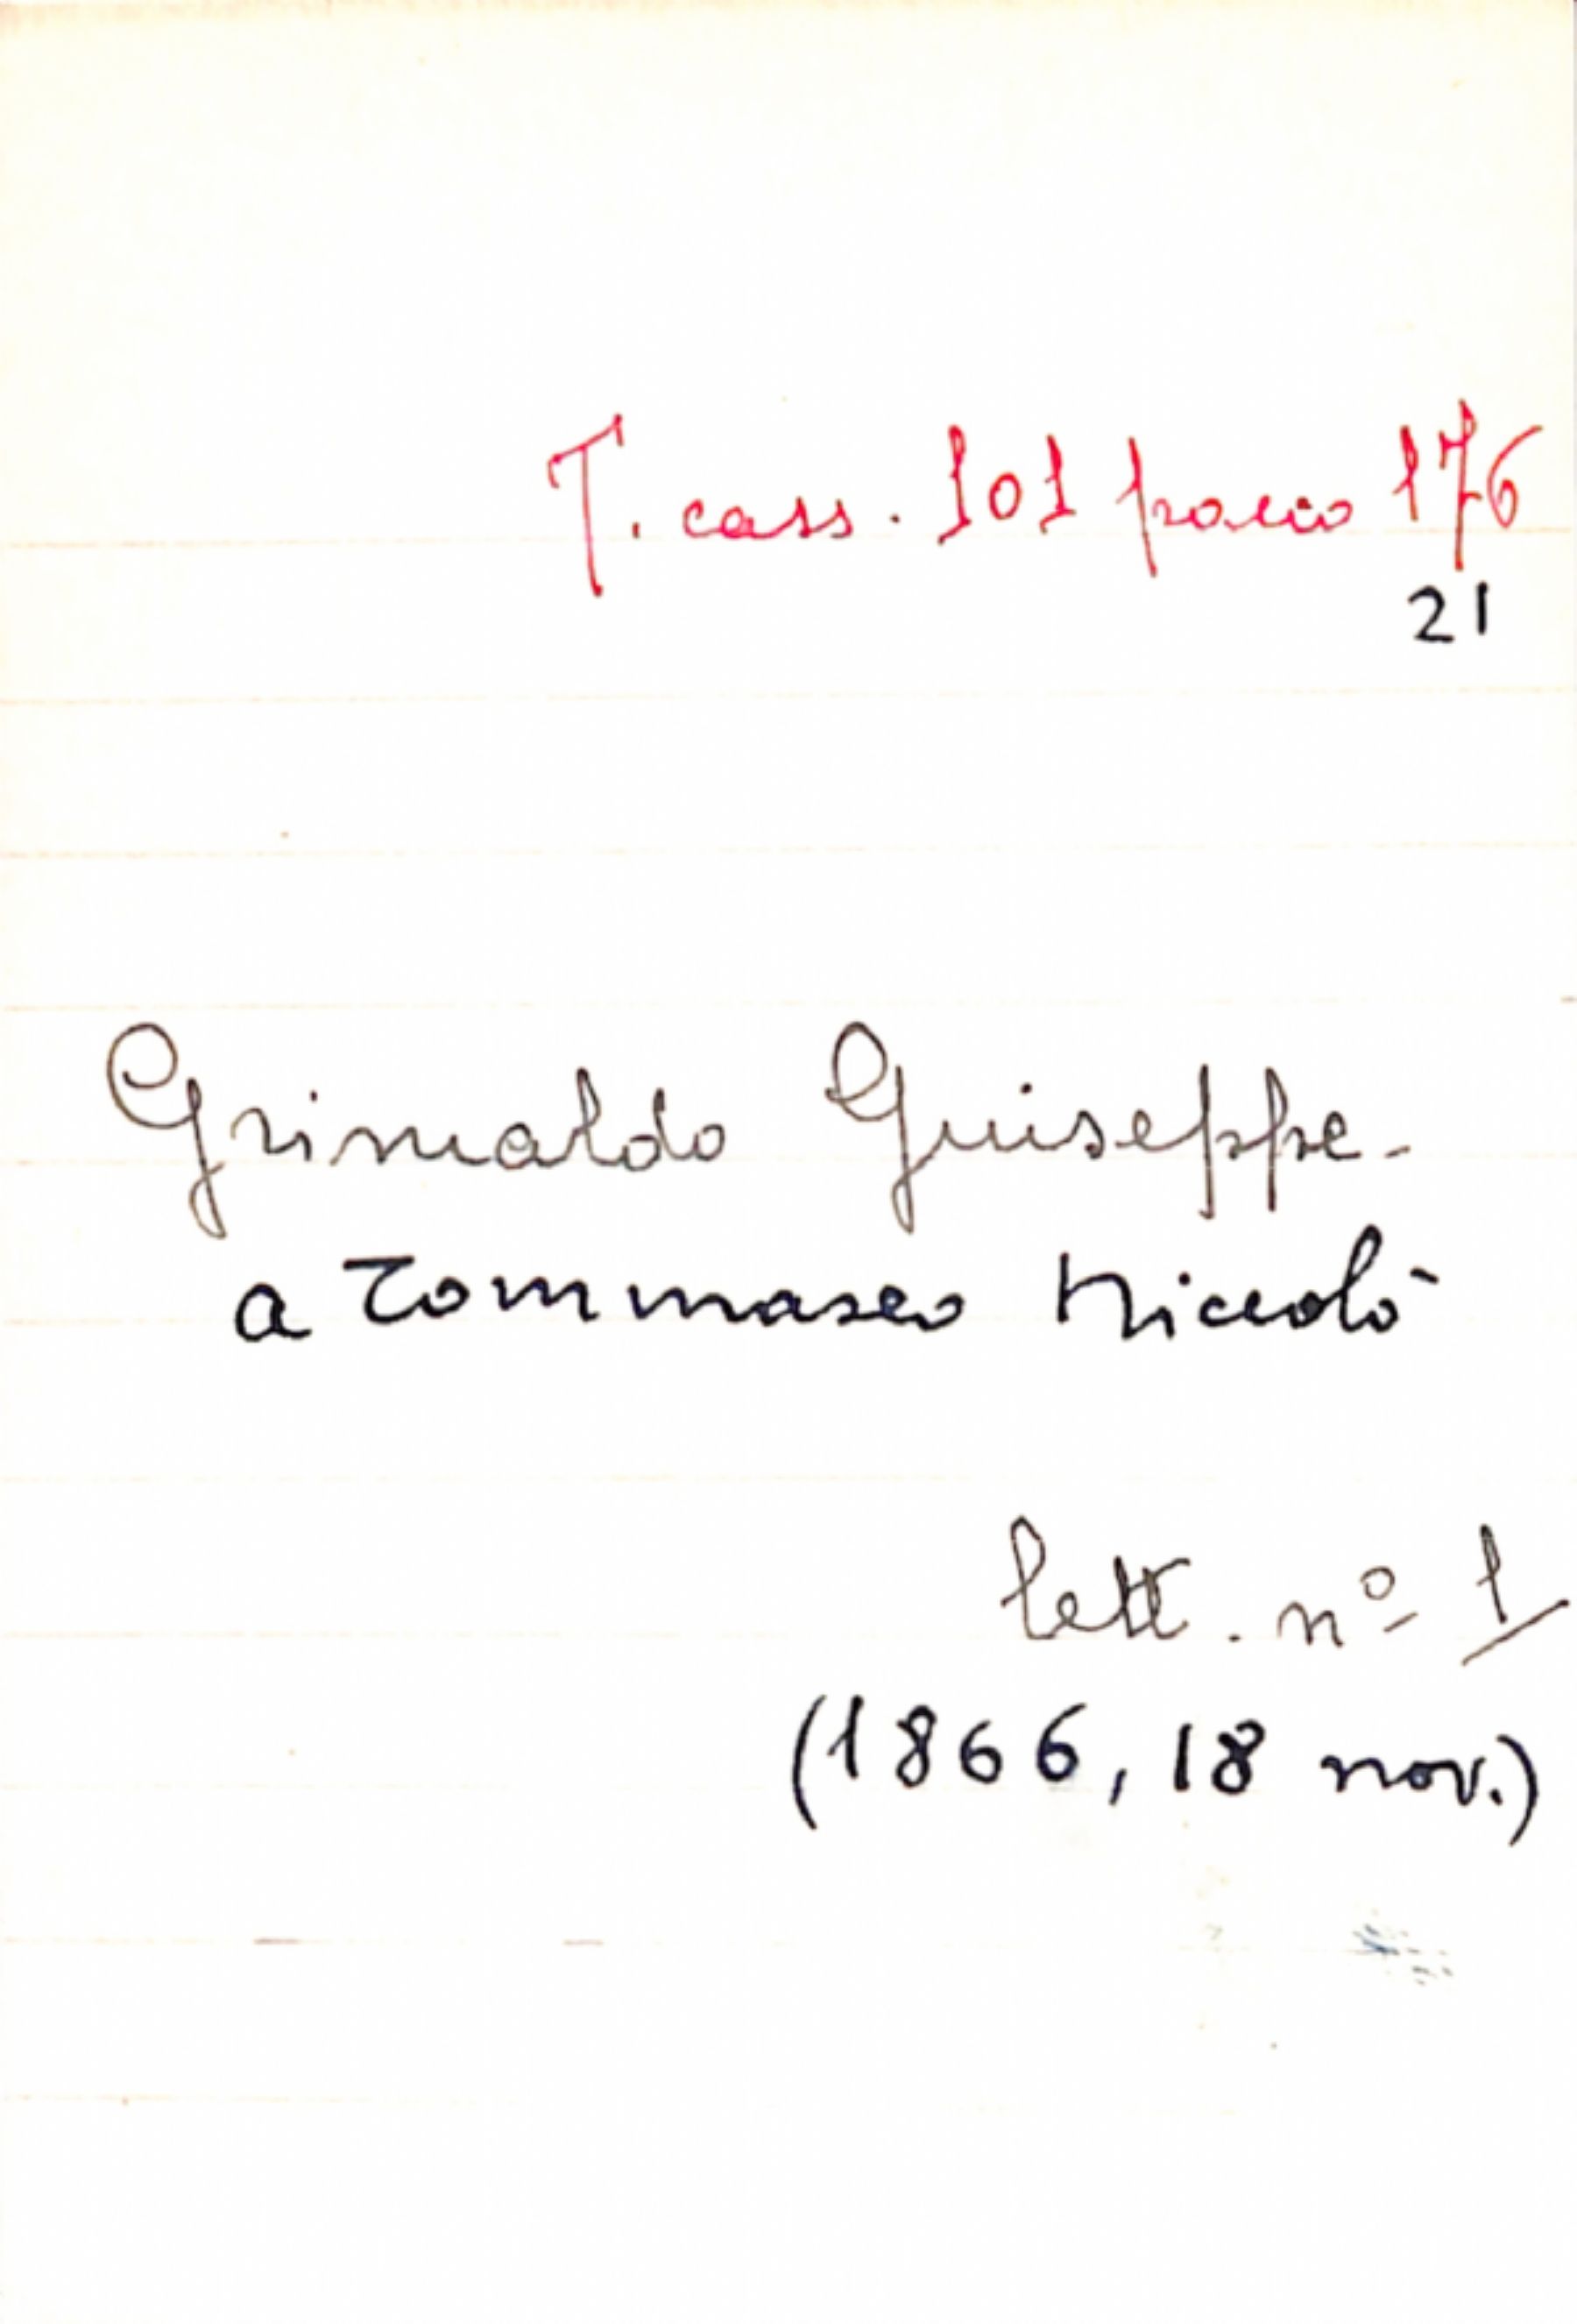 T. cass. 101 pacco 176
21
Grimaldo Giuseppe.
a Tommaseo Niccolò
lett. nº 1
(1866, 18 nov.)